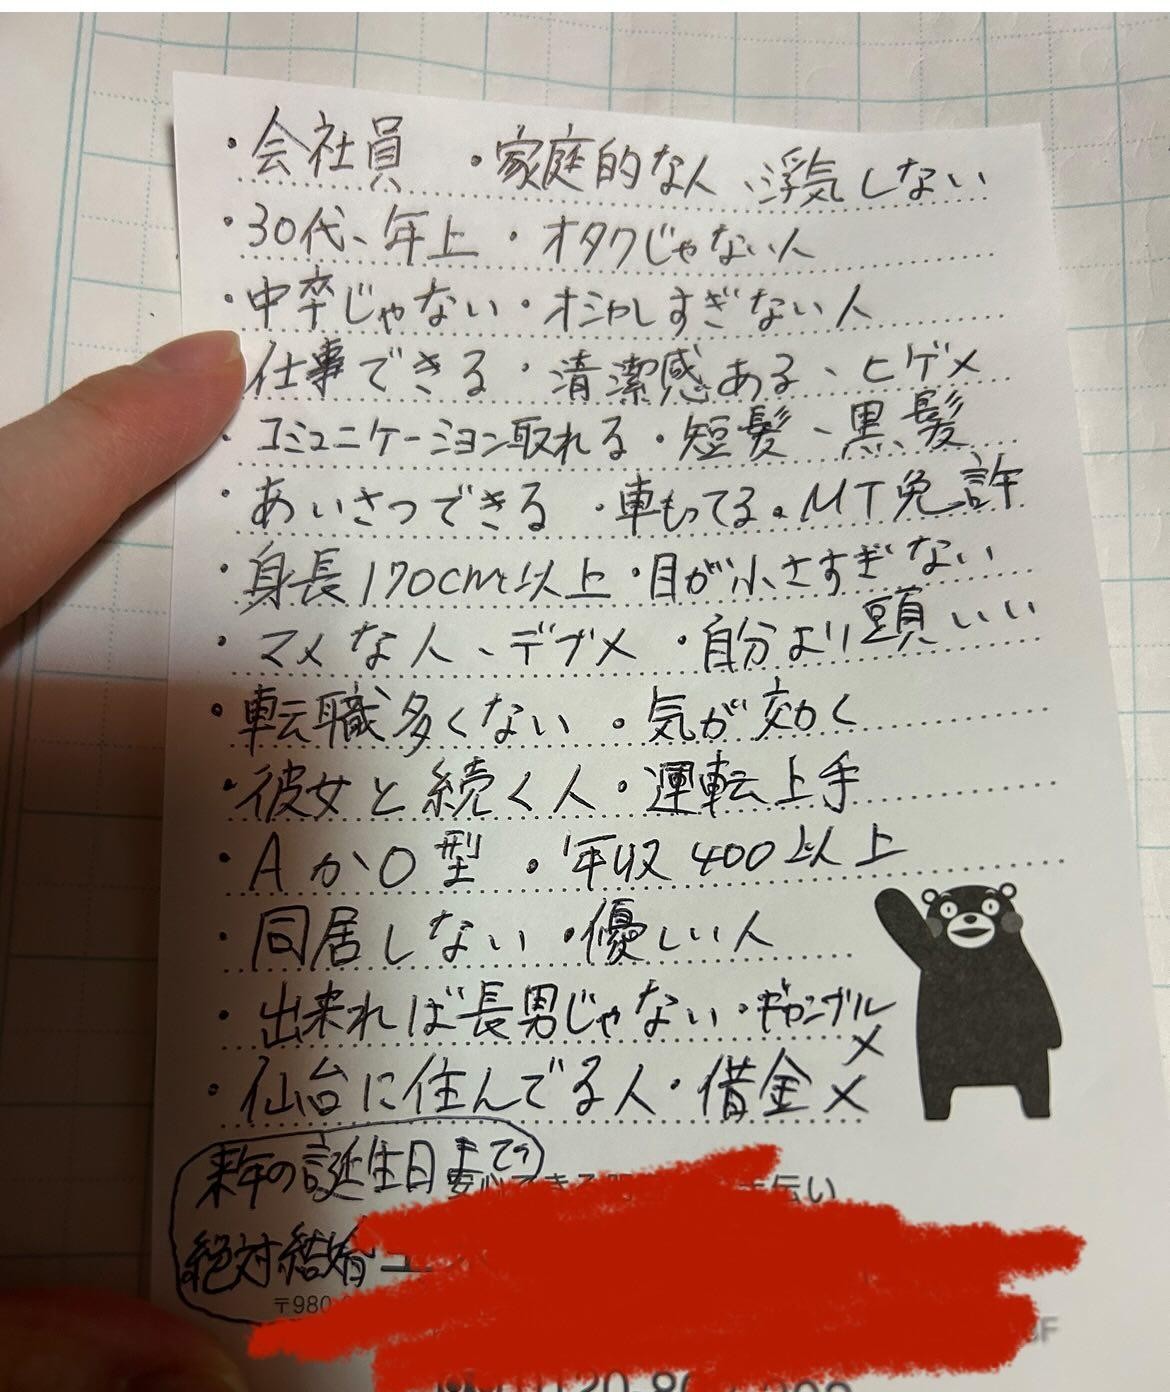 ・会社員 ・家庭的な人、浮気しない
・30代、年上 ・オタクじゃない人
・中卒じゃない・オシャレすぎない人
仕事できる ・清潔感ある、ヒゲ✕
・コミュニケーション取れる・短髪、黒髪
・あいさつできる ・車もってる。MT免許
・身長170cm以上・目が小さすぎない
・マメな人、デブ✕ ・自分より頭いい
・転職多くない ・気が効く
・彼女と続く人・運転上手
・AかO型 ・年収400以上
・同居しない ・優しい人
・出来れば長男じゃない・ギャンブル✕
・仙台に住んでる人・借金✕
来年の誕生日まで
絶対結婚
〒980